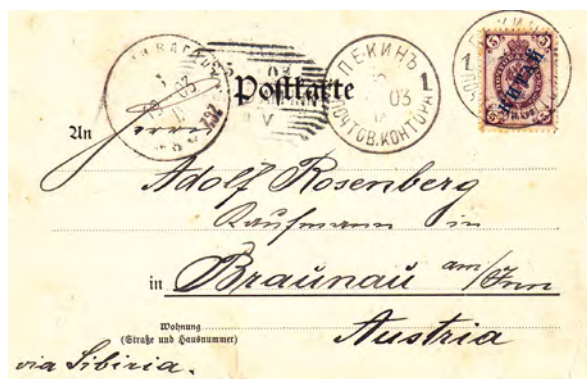 ПЕКИНЪ
1
03
ПОЧТОВ. КОНТОРА
5 5
КИТАЙ
5 5
Postkarte
An
Adolf Rosenberg
Kaufmann in
in Braunau am/Inn
Wohnung
(Straße und Hausnummer)
Austria
via Sibiria.